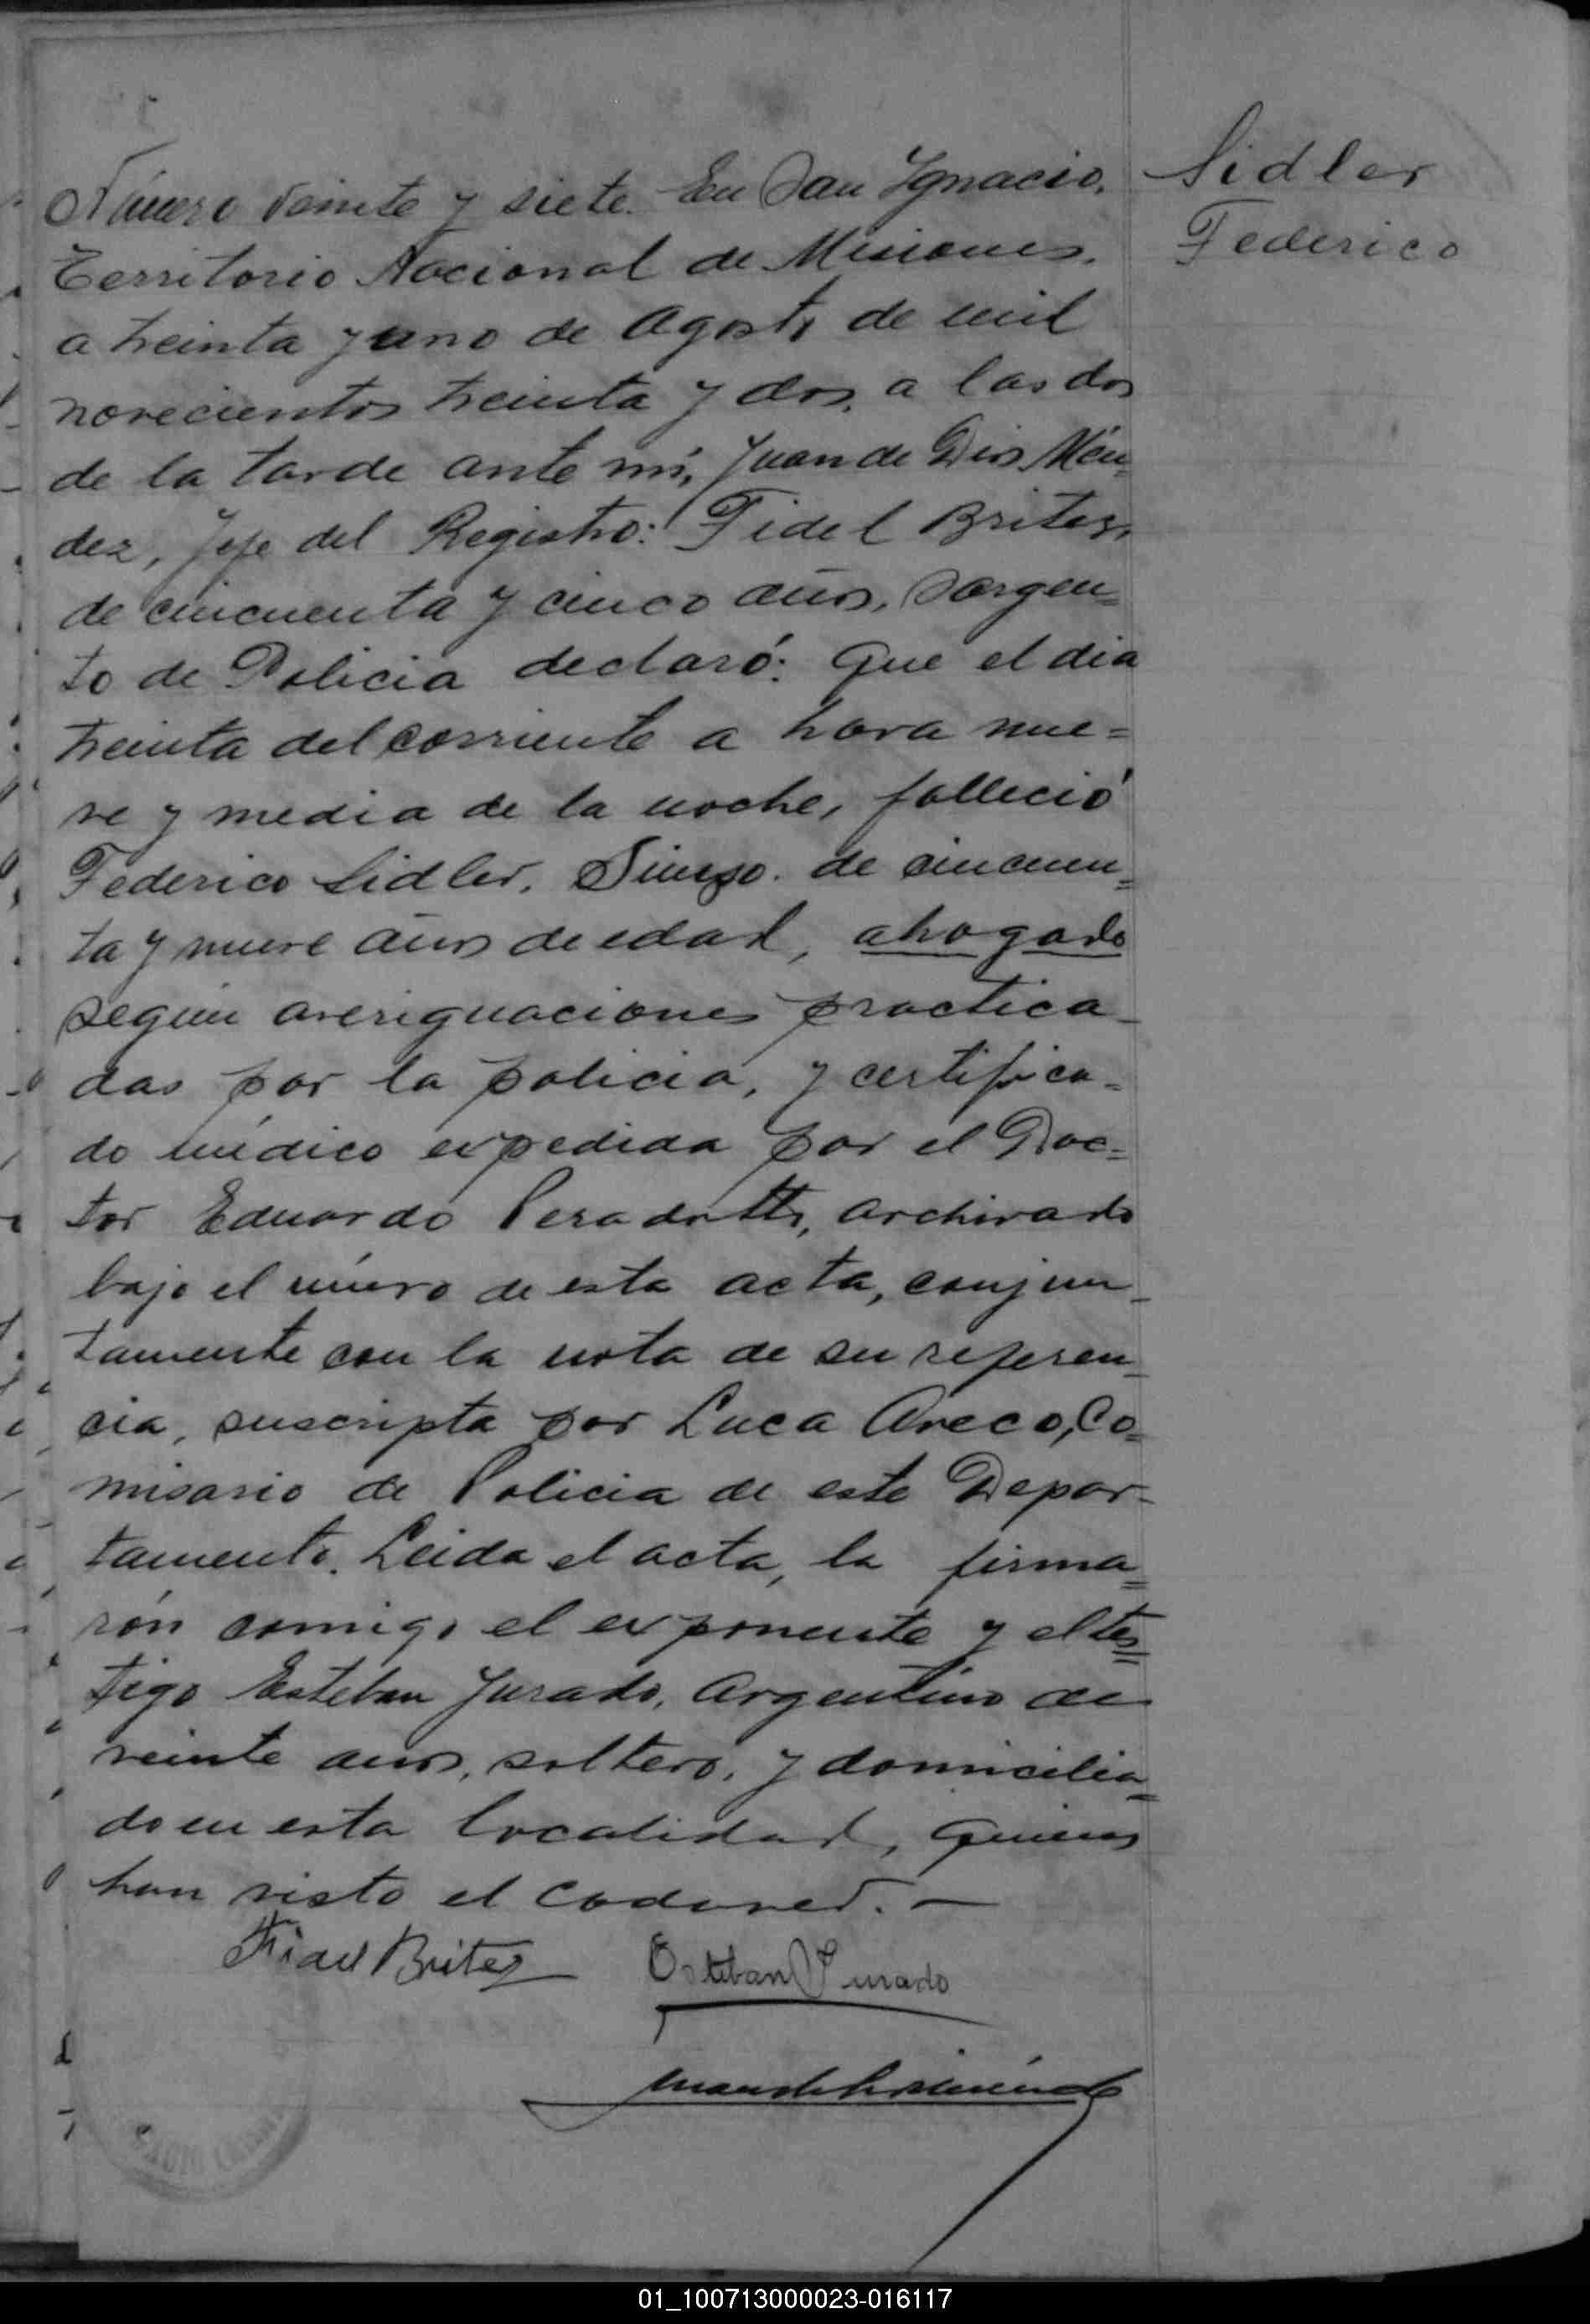 Número veinte y siete. En San Ignacio,
Territorio Nacional de Misiones,
a treinta y uno de Agosto de mil
novecientos treinta y dos, a las dos
de la tarde ante mí, Juan de Dios Mén-
dez, Jefe del Registro: Fidel Britez,
de cincuenta y cinco años, Sargen=
to de Policia declaró: Que el dia
treinta del corriente a hora nue=
ve y media de la noche, falleció
Federico Sidler, Suizo, de cincuen=
ta y nueve años de edad, ahogado
según averiguaciones practica-
das por la policia, y certifica=
do médico expedida por el Doc=
tor Eduardo Peradotto, archivado
bajo el número de esta acta, conjun-
tamente con la nota de su referen-
cia, suscripta por Luca Areco, Co=
misario de Policia de este Depar-
tamento. Leida el acta, la firma=
rón comigo el exponente y el tes=
tigo Esteban Jurado, Argentino de
veinte años, soltero, y domicilia=
do en esta localidad, quienes
han visto el cadaver. —
Fidel Britez Esteban Jurado
Juan de Dios Méndez
Sidler
Federico
01_100713000023-016117